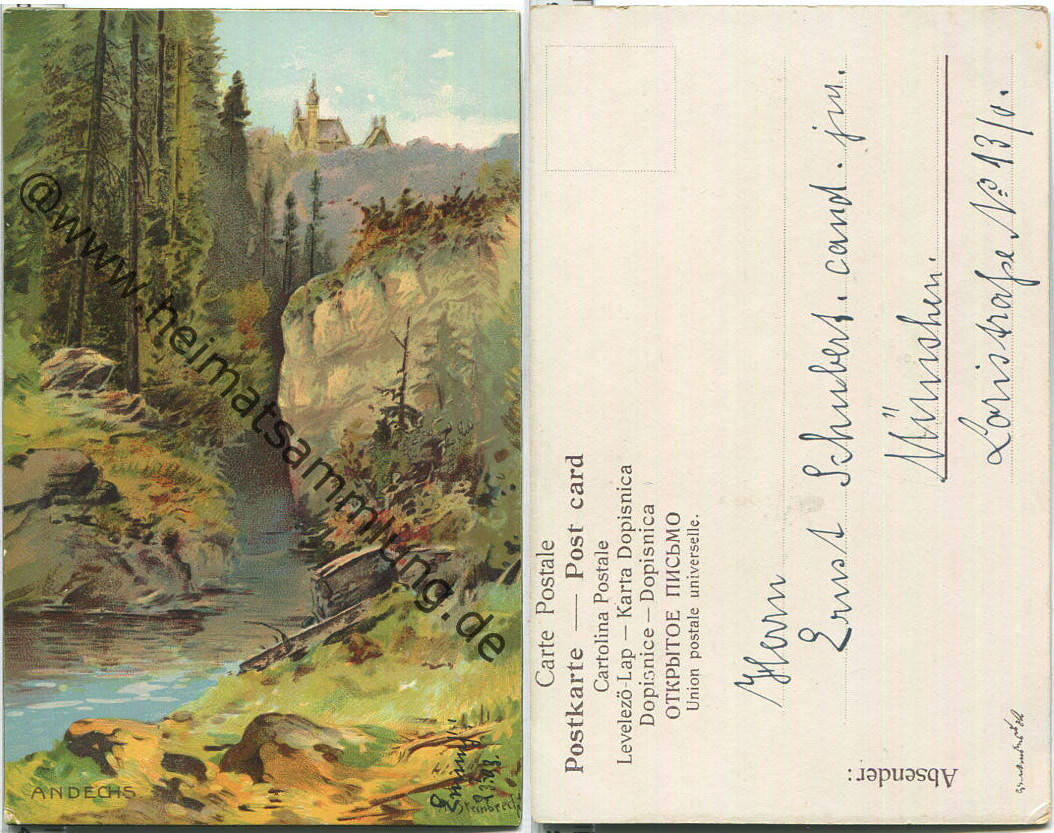 @www.heimatsammlung.de
ANDECHS
Steinbrecht
Carte Postale
Postkarte — Post card
Cartolina Postale
Levelező-Lap — Karta Dopisnica
Dopisnice — Dopisnica
ОТКРЫТОЕ ПИСЬМО
Union postale universelle.
Herrn
Ernst Schubert. cand. jur.
München.
Loristraße No 13/0.
Absender: